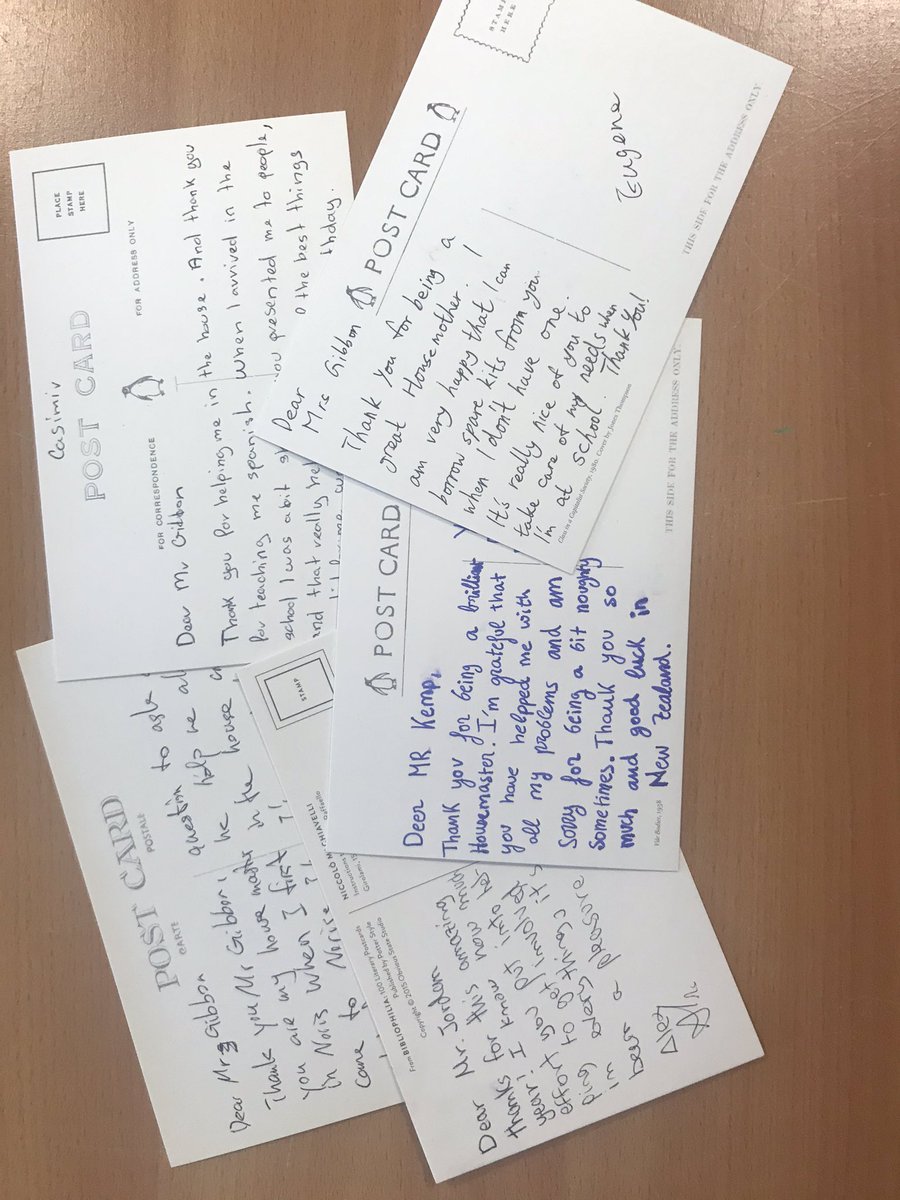 Casimir
POST CARD
PLACE
STAMP
HERE
FOR CORRESPONDENCE
FOR ADDRESS ONLY
Dear Mr Gibbon
Thank you for helping me in the house. And thank you
for teaching me spanish. When I arrived in the
school I was a bit
you presented me to people,
and that really
the best things
thday.
POST CARD
STAMP
HERE
THIS SIDE FOR THE ADDRESS ONLY.
Dear
Mrs Gibbon
Thank you for being a
great Housemother. I
am very happy that I can
borrow spare kits from you
when I don't have one.
It's really nice of you to
take care of my needs when
I'm at school. Thank You!
Eugene
Class in a Capitalist Society, 1980. Cover by Jones Thompson
POST CARD
THIS SIDE FOR THE ADDRESS ONLY.
Deer MR Kemp,
Thank you for being a brilliant
Housemaster. I'm grateful that
you have helpped me with
all my problems and am
Sorry for being a bit noughty
Sometimes. Thank you so
much and good luck in
New Zealand.
1958
POST CARD
CARTE POSTALE
Dear Mrs Gibbon
Thank you Mr Gibbon,
You are my house master
in Noris When I first
came to Norise
question to ask
he help me
in the house
STAMP
NICCOLO
CHIAVELLI
From BIBLIOPHILIA: 100 Literary Postcards
Published by Potter Style
Copyright © 2015 Obvious State Studio
Dear Mr. Jordan
thanks for amazing
year! I know this
effort you put into
ping every things it's
im a pleasure